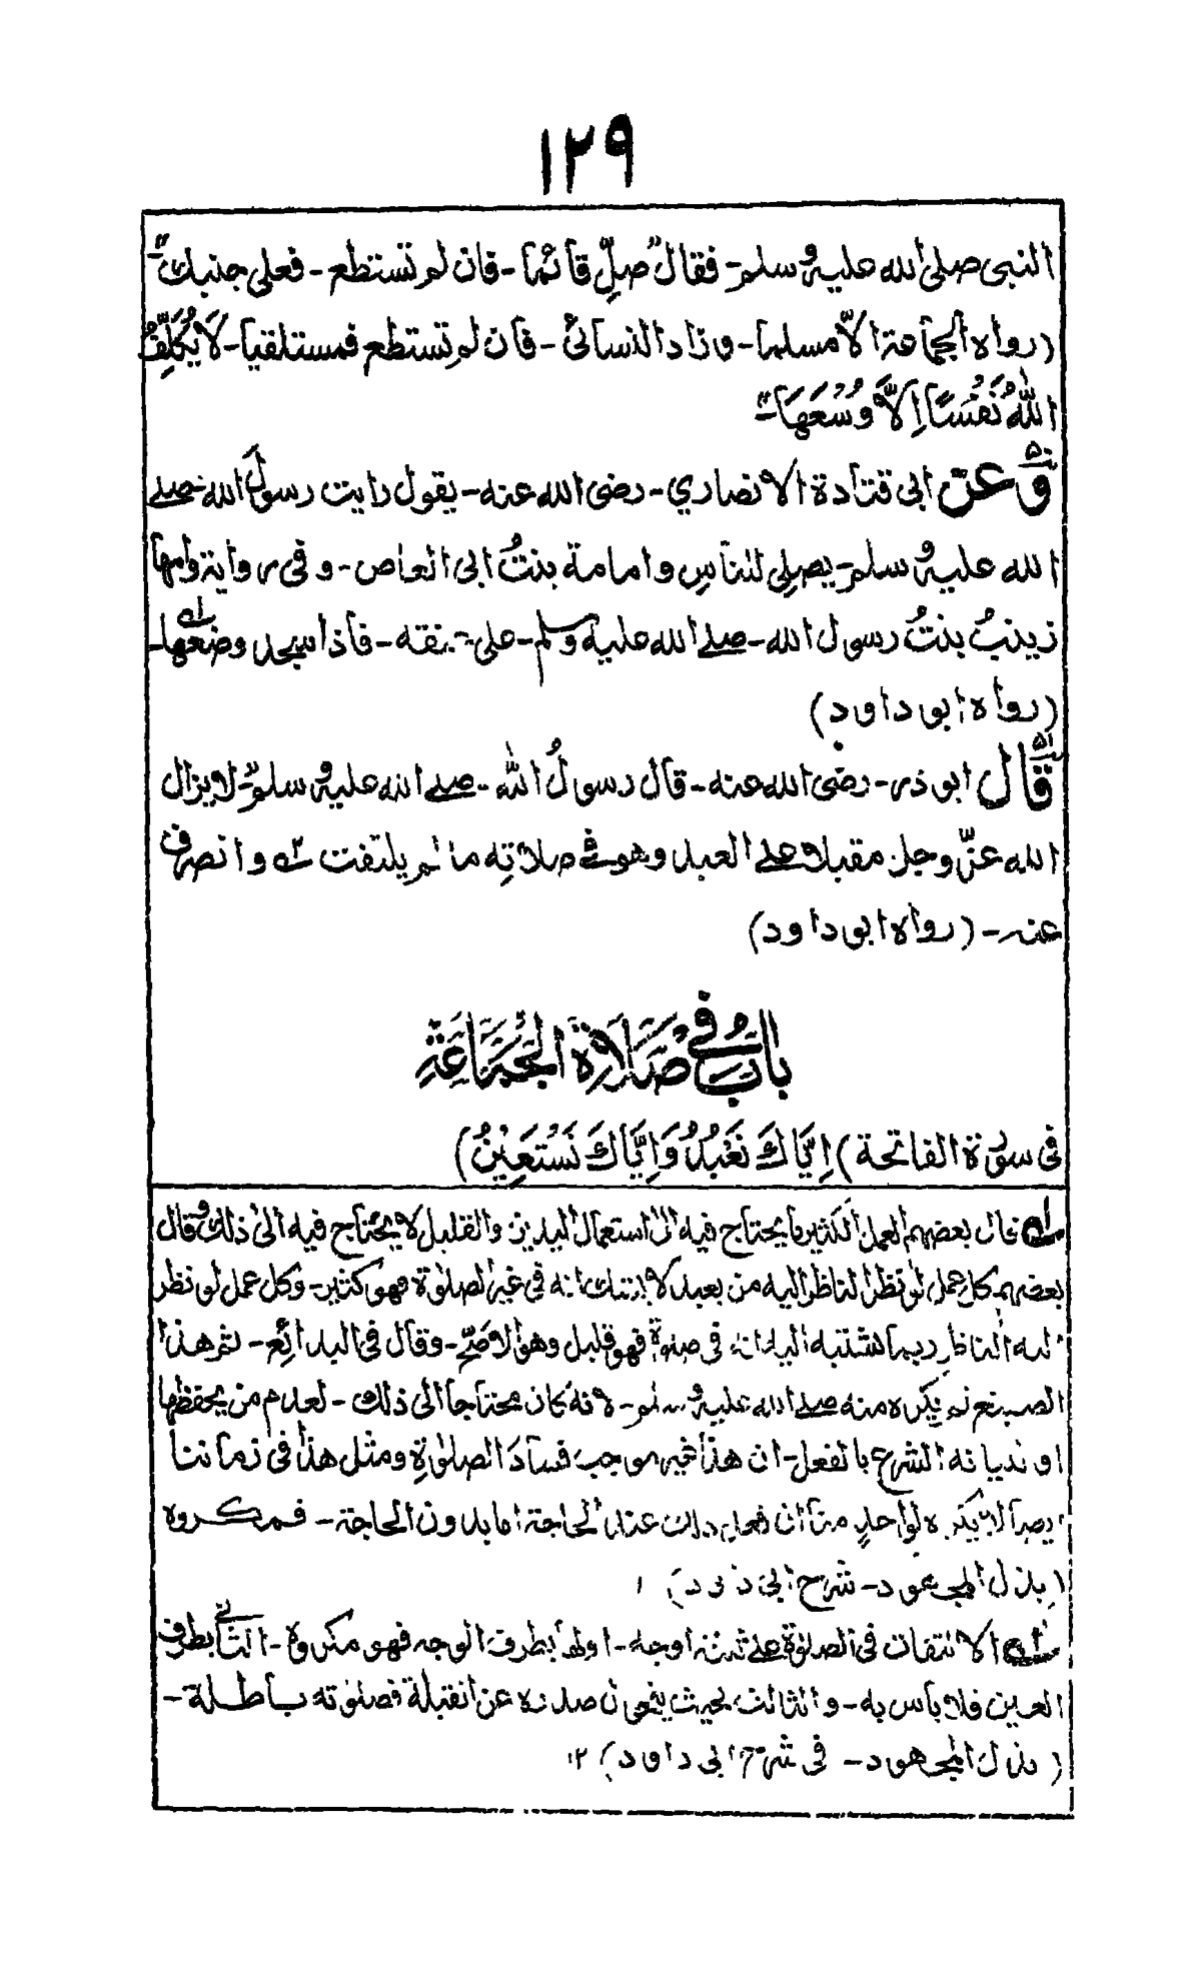 ١٢٩
النبي صلى الله عليه وسلم- فقال "صلِّ قائما- فان لم تستطع- فعلى جنبك"-
(رواه الجماعة الاّ مسلما- وزاد النسائى- فان لم تستطع فمستلقيا- لَا يُكَلِّفُ
اللهُ نَفْسًا اِلَّا وُسْعَهَا-"
وعن ابى قتادة الانصاري- رضى الله عنه- يقول رايت رسولَ الله صلے
الله عليه وسلم- يصلِى للناسِ وامامة بنتُ ابى العاص- وفى رواية وامها
زينبُ بنتُ رسول الله- صلے الله عليه وسلم- على عنقه- فاذا سجد وضعها-
(رواه ابو داود)
قال ابو ذر- رضى الله عنه- قال رسولُ الله- صلے الله عليه وسلم- لا يزال
الله عزّ وجل مقبلا على العبد وهو فى صلاتِه ما لم يلتفت وانصرف
عنه- (رواه ابو داود)
بابٌ فى صَلَاةِ الْجَمَاعَةِ
فى سورة الفاتحة) اِيَّاكَ نَعْبُدُ وَاِيَّاكَ نَسْتَعِيْنُ)
قال بعضهم العمل الكثير ما يحتاج فيه الى استعمال اليدين والقليل لا يحتاج فيه الى ذلك وقال
بعضهم كل عمل لو نظر الناظر اليه من بعيد لا يشك انه فى غير الصلوة فهو كثير- وكل عمل لو نظر
اليه الناظر ربما يشتبه اليه انه فى صلوة فهو قليل وهو الاصح- وقال فى البدائع- ثم هذا
الصنيع لم يكره منه صلے الله عليه وسلم- لانه كان محتاجا الى ذلك- لعدم من يحفظها
او بيانه الشرع بالفعل- ان هذا غير موجب فسادَ الصلوٰة ومثل هذا فى زماننا
ايضا لا يكره لواحدٍ منا ان فعل ذلك عند الحاجة اما بدون الحاجة- فمكروه
(بذل المجهود- شرح ابى داود)
الالتفات فى الصلوٰة على ثلثة اوجه- اولها بطرف الوجه فهو مكروه- الثانى بطرف
العين فلا باس به- والثالث بحيث يتحول صدره عن القبلة فصلوٰته باطلة-
(بذل المجهود- فى شرح ابى داود) ١٢